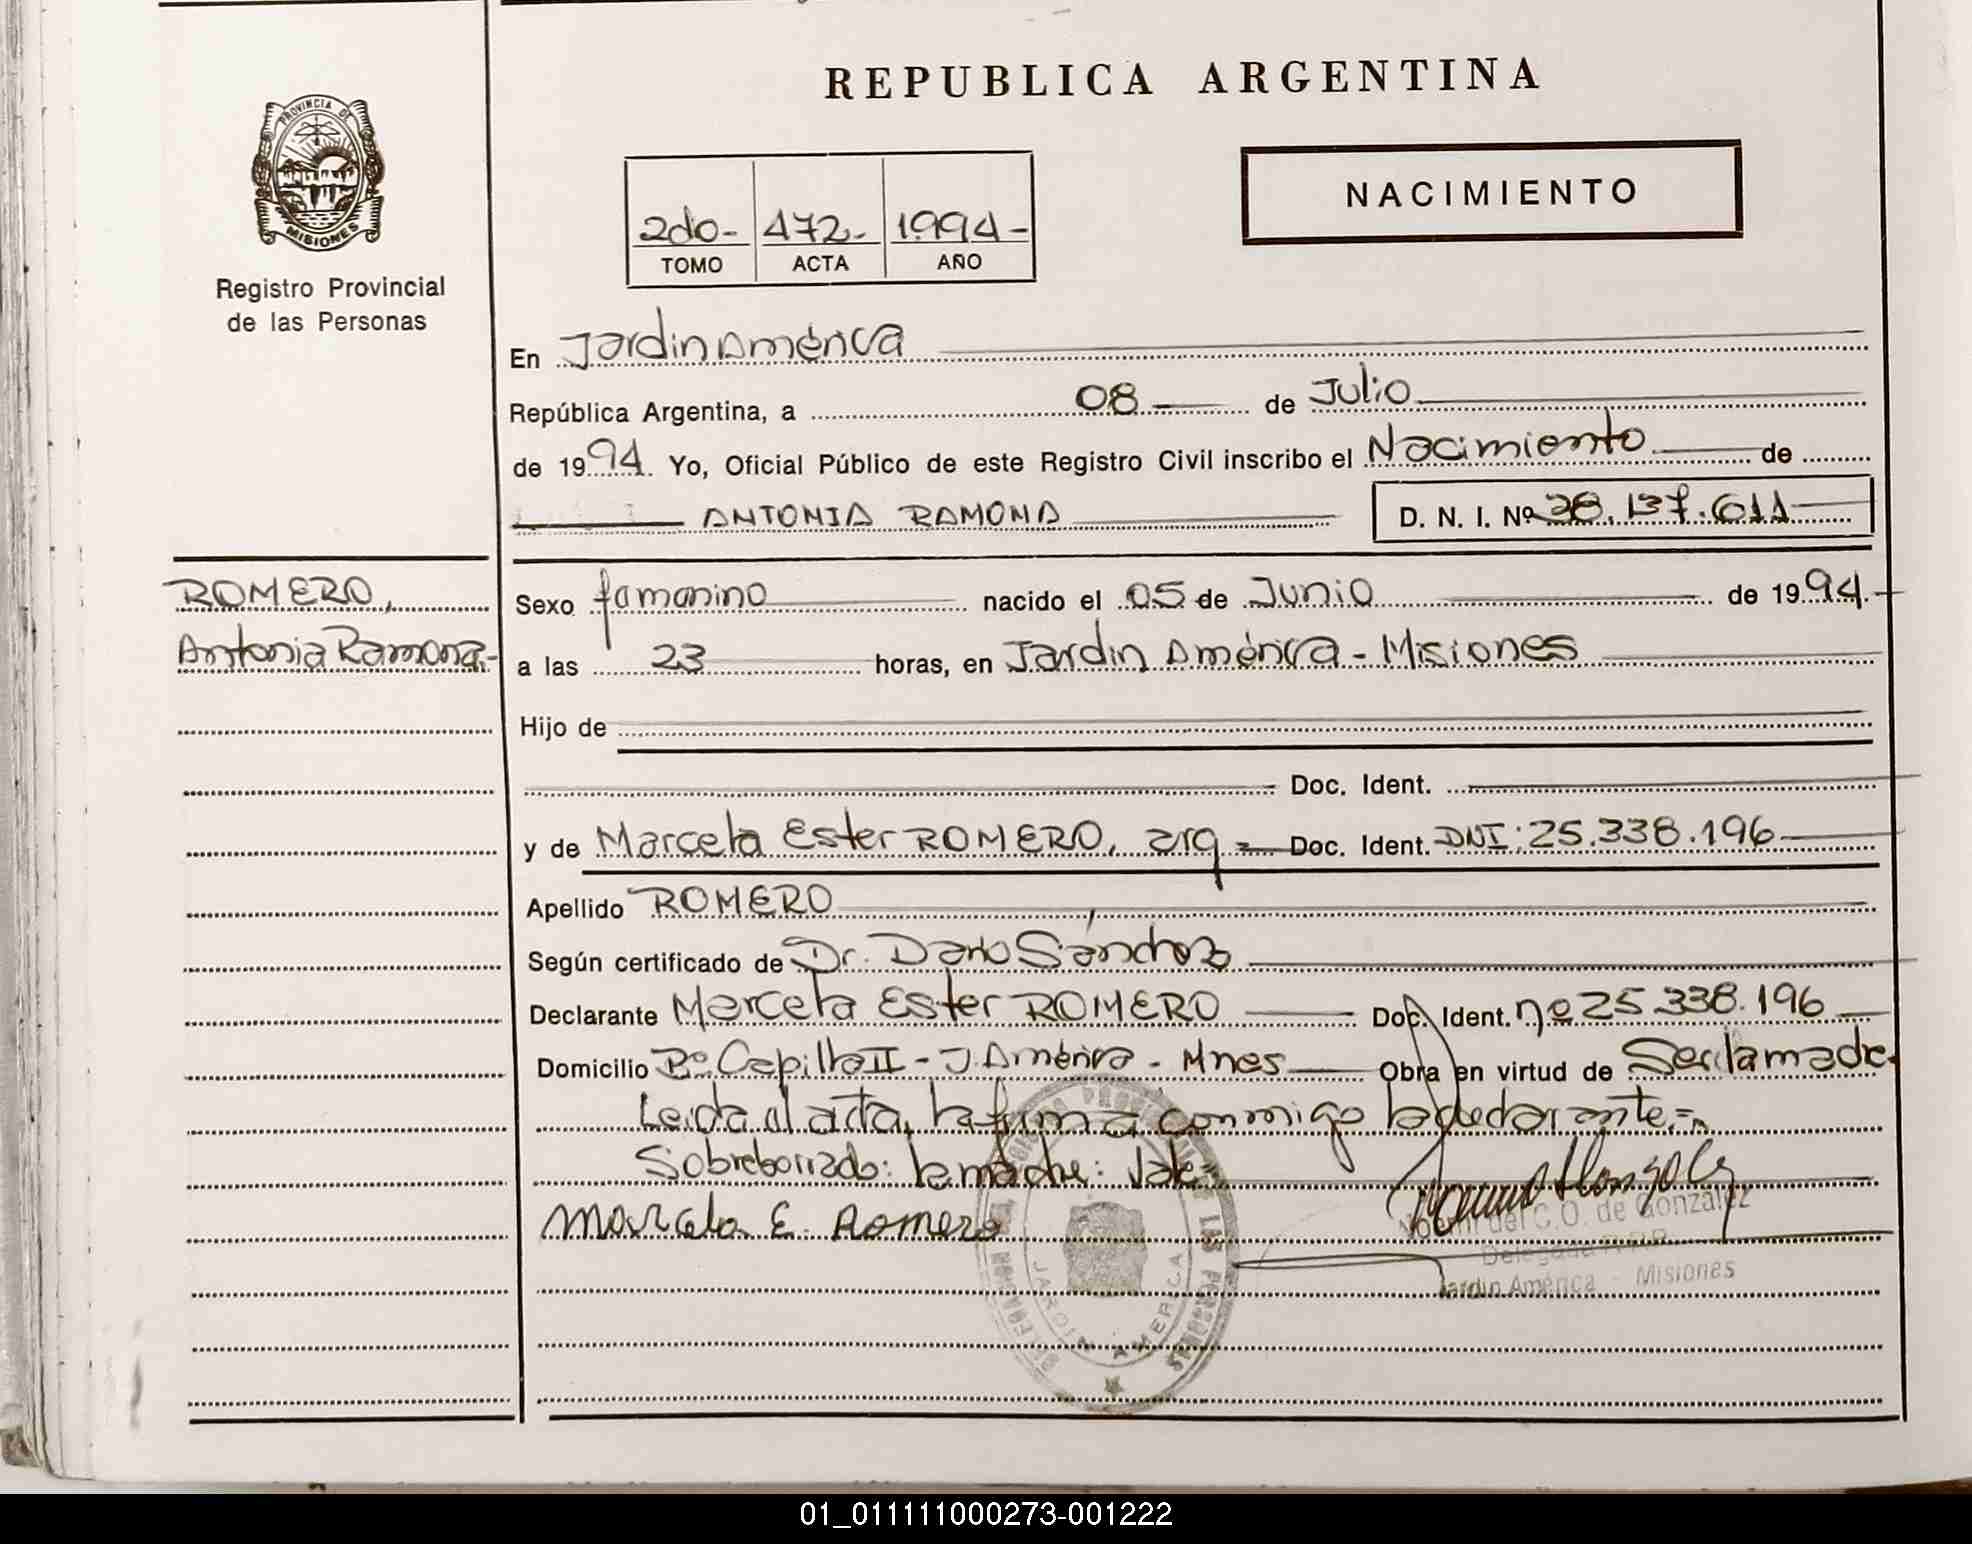 REPUBLICA ARGENTINA
PROVINCIA DE
MISIONES
Registro Provincial
de las Personas
NACIMIENTO
2do- 472- 1994-
TOMO ACTA AÑO
En Jardin América
República Argentina, a 08 de Julio
de 1994. Yo, Oficial Público de este Registro Civil inscribo el Nacimiento de
ANTONIA RAMONA D. N. I. Nº 38.137.611
ROMERO,
Antonia Ramona.-
Sexo femenino nacido el 05 de Junio de 1994.
a las 23 horas, en Jardin América - Misiones
Hijo de
Doc. Ident.
y de Marcela Ester ROMERO, arg = Doc. Ident. DNI: 25.338.196
Apellido ROMERO
Según certificado de Dr. Dario Sánchez
Declarante Marcela Ester ROMERO Doc. Ident. nº 25.338.196
Domicilio Bº Capilla II - J. América - Mnes Obra en virtud de Ser la madre.
Leida el acta, la firma conmigo la declarante.=
Sobreborrado: la madre: Vale=
Marcela E. Romero
del C.O. de González
Delegada R.P.P.
Jardín América - Misiones
JARDIN AMERICA
01_011111000273-001222